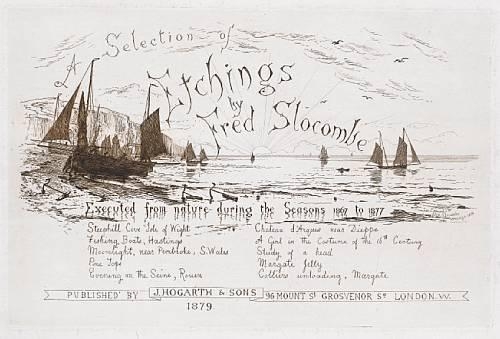 A Selection of
Etchings
by
Fred Slocombe
Executed from nature during the Seasons 1867 to 1877
Steephill Cove Isle of Wight
Fishing Boats, Hastings
Moonlight, near Pembroke, S. Wales
Pine Tops
Evening on the Seine, Rouen
Chateau d'Arques near Dieppe
A Girl in the Costume of the 16th Century
Study of a head
Margate Jetty
Colliers unloading, Margate
PUBLISHED BY J. HOGARTH & SONS 96 MOUNT ST GROSVENOR SQ LONDON. W.
1879